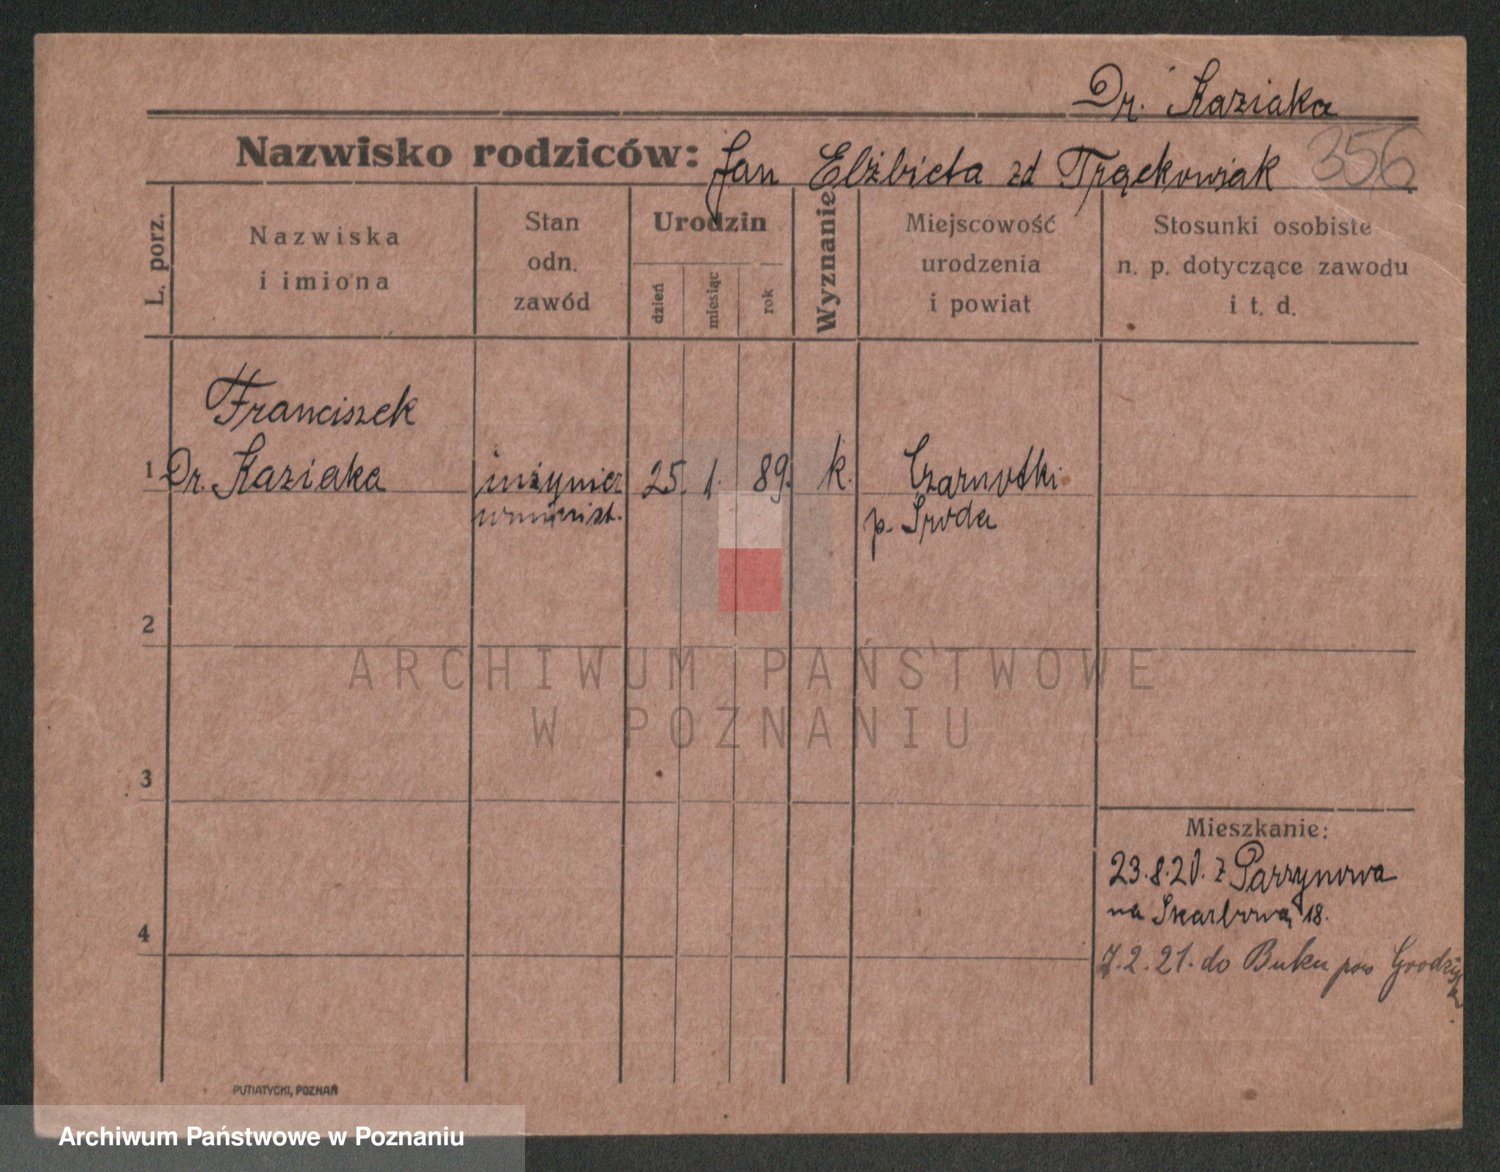 Dr. Kaziaka
Nazwisko rodziców: Jan Elżbieta zd Trąckowiak
356
L. porz.
Nazwiska
i imiona
Stan
odn.
zawód
Urodzin
dzień
miesiąc
rok
Wyznanie
Miejscowość
urodzenia
i powiat
Stosunki osobiste
n. p. dotyczące zawodu
i t. d.
Franciszek
1 Dr. Kaziaka inżynier 25. 1. 89. k. Czarnotki
p. Środa
2
ARCHIWUM PAŃSTWOWE
W POZNANIU
3
Mieszkanie:
23.8.20. z Parzynowa
na Skarbową 18.
4
7.2.21. do Buku pow Grodzisk
PUTIATYCKI, POZNAŃ
Archiwum Państwowe w Poznaniu